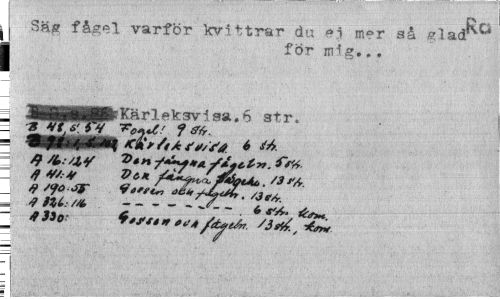 Säg fågel varför kvittrar du ej mer så glad Ra
för mig...
Kärleksvisa. 6 str.
B 48, s. 54 Fogel! 9 str.
Kärleksvisa 6 str.
A 16:124 Den fångna fågeln. 5 str.
A 41:4 Den fångna fågeln. 13 str.
A 190:55 Gossen och fågeln. 13 str.
A 326:116 - - - - - - - - - . 6 str. kom.
A 330: Gossen och fågeln. 13 str., kom.